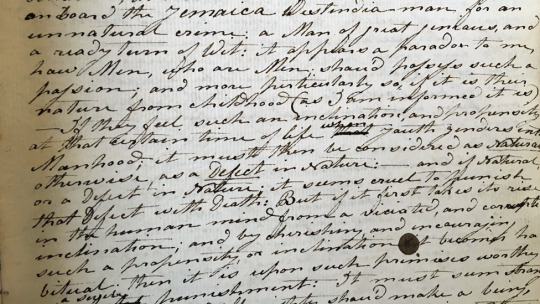 on board the Jemaica Westindia-man, for an
unnatural crime; a Man of great genious, and
a ready turn of Wit: it appears a paradox to me,
how Men, who are Men, shou'd possess such a
passion; and more particularly so, if it is their
nature from childhood (as I am informed it is)
— If they feel such an inclination, and propensity,
at that certain time of life when youth genders into
Manhood; it must then be considered as Natural
otherwise, as a Defect in Nature:— and if Natural
or a Defect in Nature; it seems cruel to punish
that Defect with Death: But if it first takes its rise
in the human mind from a viciated, and corrupted
inclination, and by cherishing, and incouraging
such a propensity, or inclination becomes ha
bitual: then it is upon such premises worthy
punishment: It must seem strange
shou'd make a being